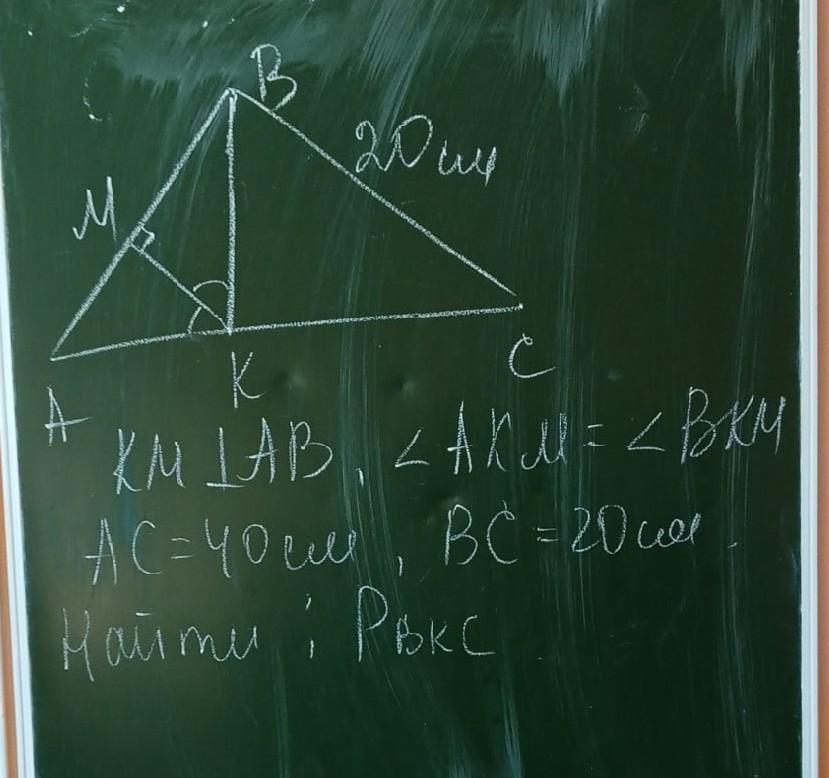 B
20 см
M
K
C
A
KM ⊥ AB, ∠AKM = ∠BKM
AC = 40 см, BC = 20 см.
Найти: P BKC